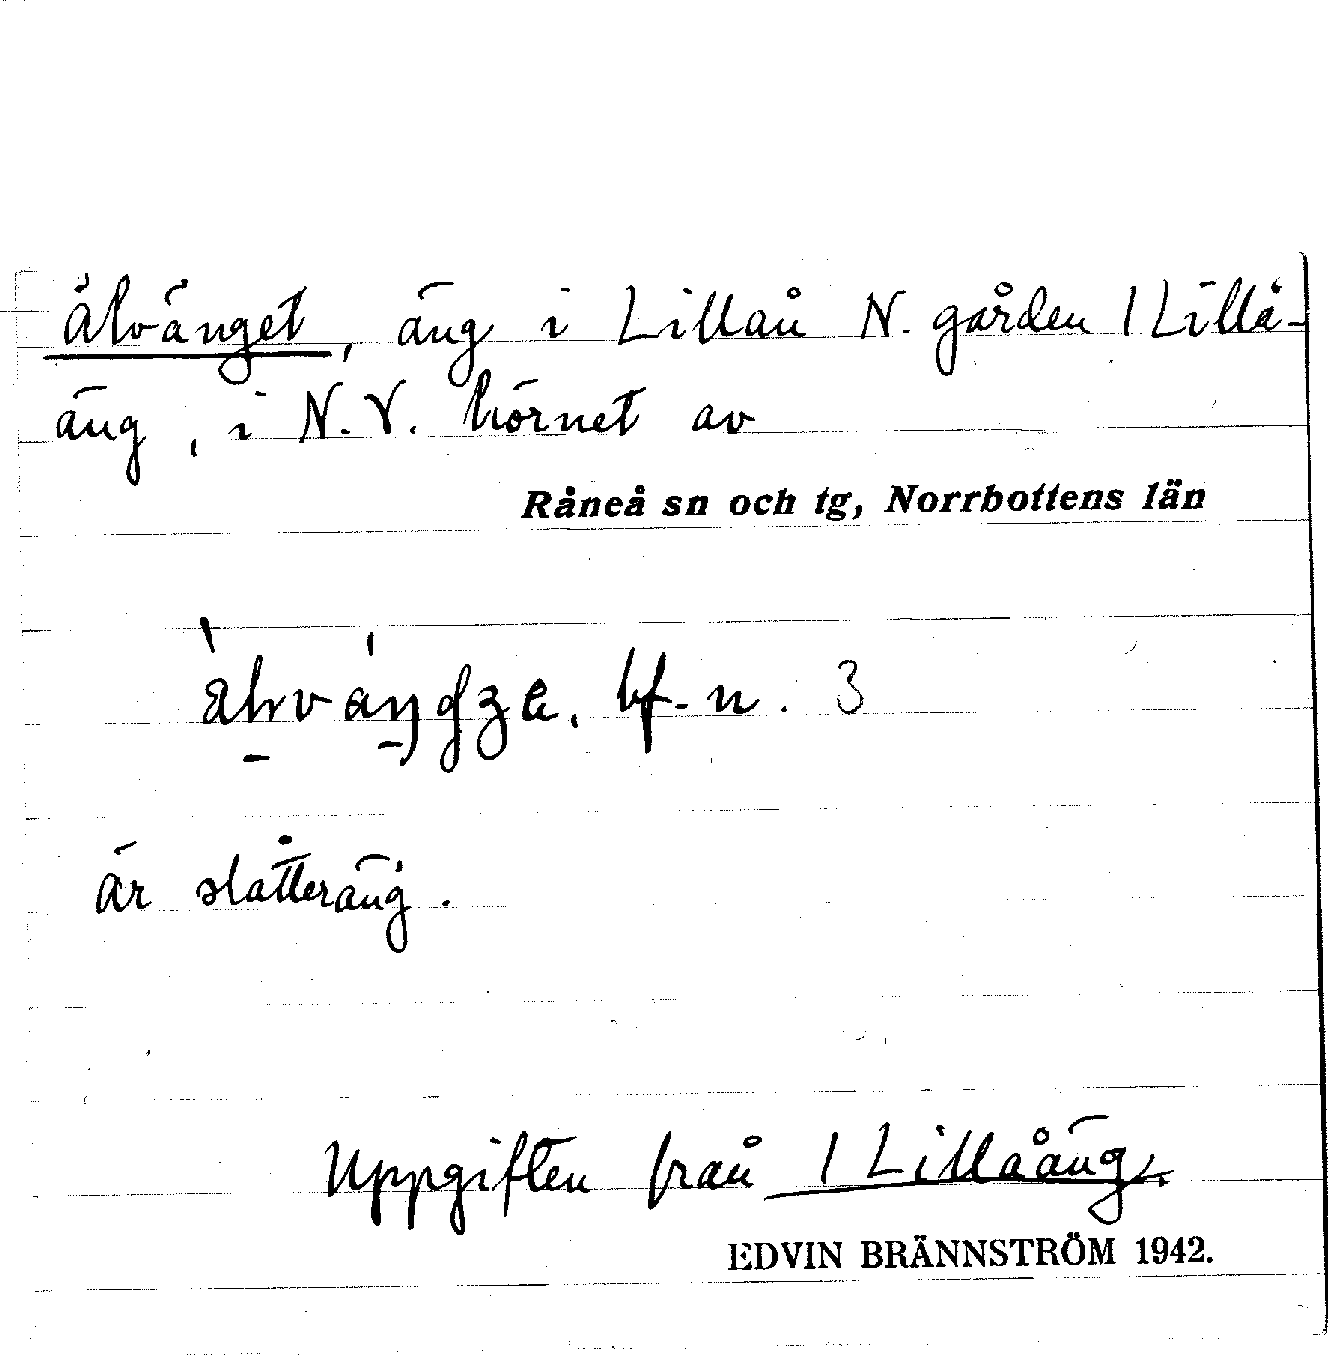 Älvänget, äng i Lillån N. gården 1 Lillå-
äng, i N.V. hörnet av
Råneå sn och tg, Norrbottens län
bf. n. 3
är slåtteräng.
Uppgiften från 1 Lillåäng.
EDVIN BRÄNNSTRÖM 1942.